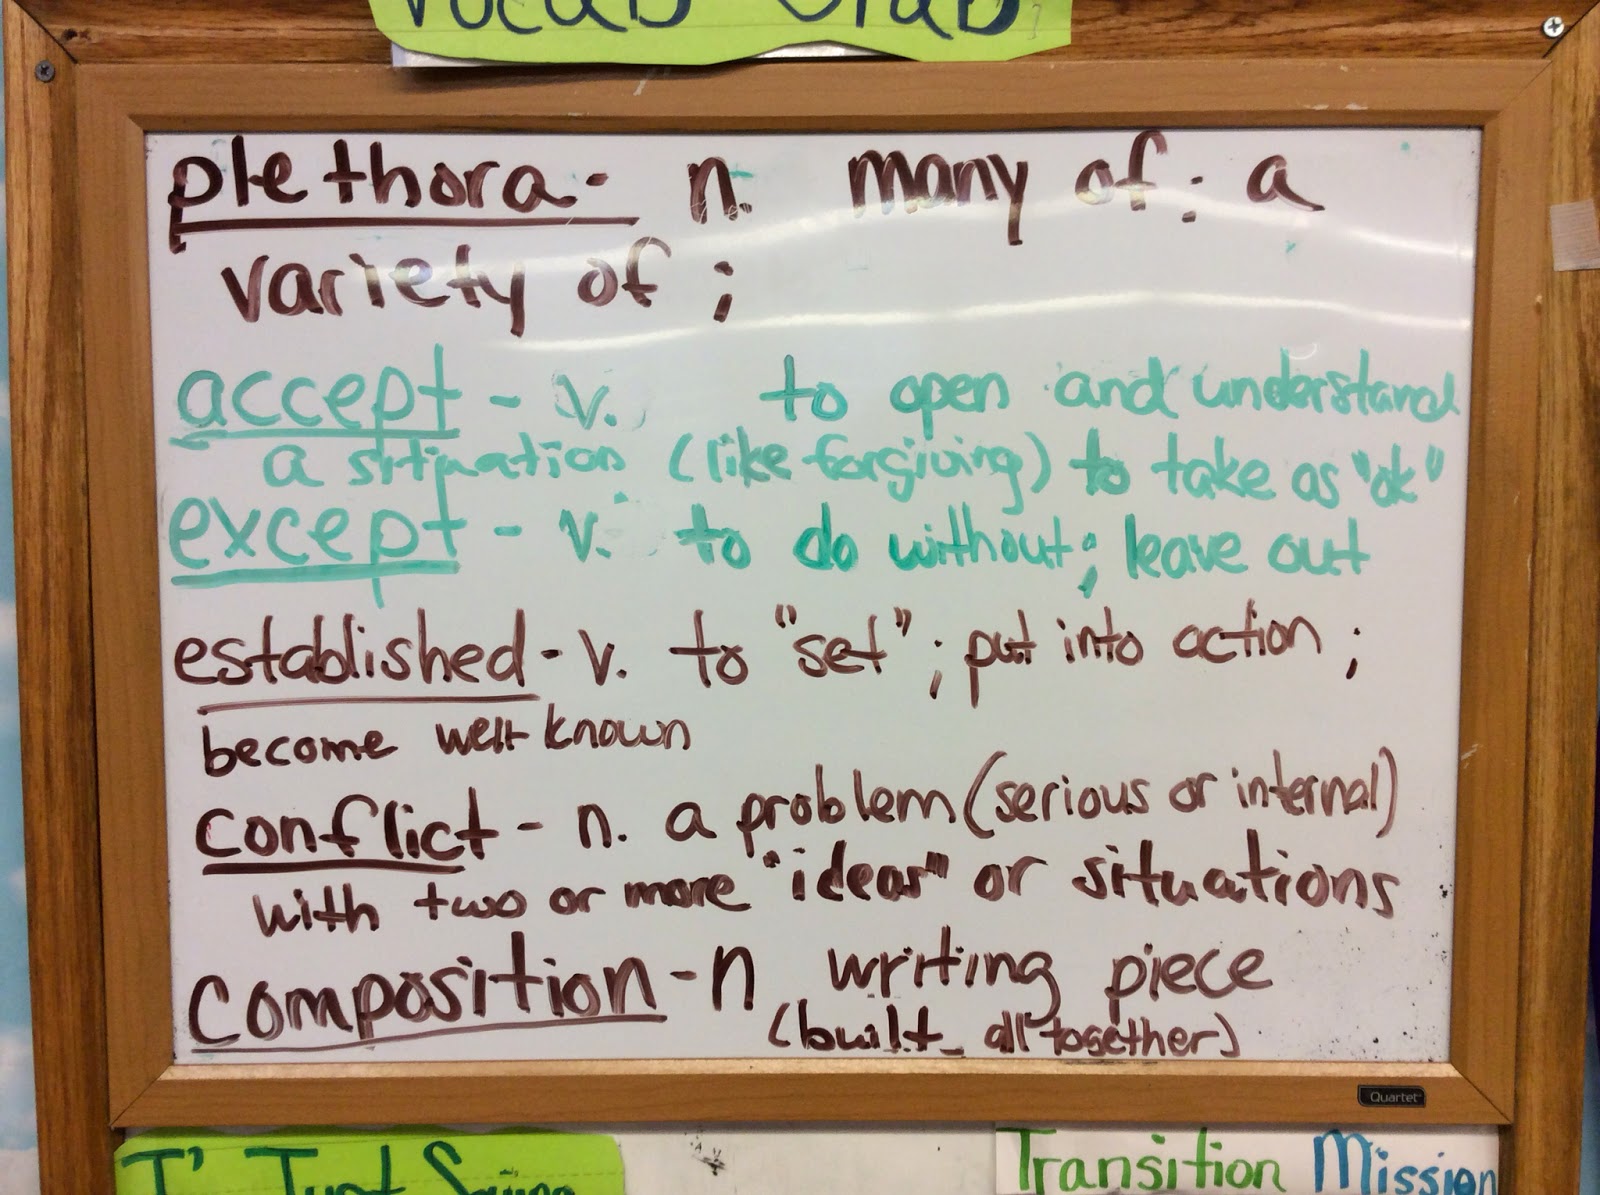 Vocab
plethora - n. many of; a
variety of ;
accept - v. to open and understand
a situation (like forgiving) to take as "ok"
except - v. to do without; leave out
established - v. to "set" ; put into action ;
become well known
conflict - n. a problem (serious or internal)
with two or more "ideas" or situations
composition - n writing piece
(built all together)
Quartet
I' Just Saying
Transition Mission